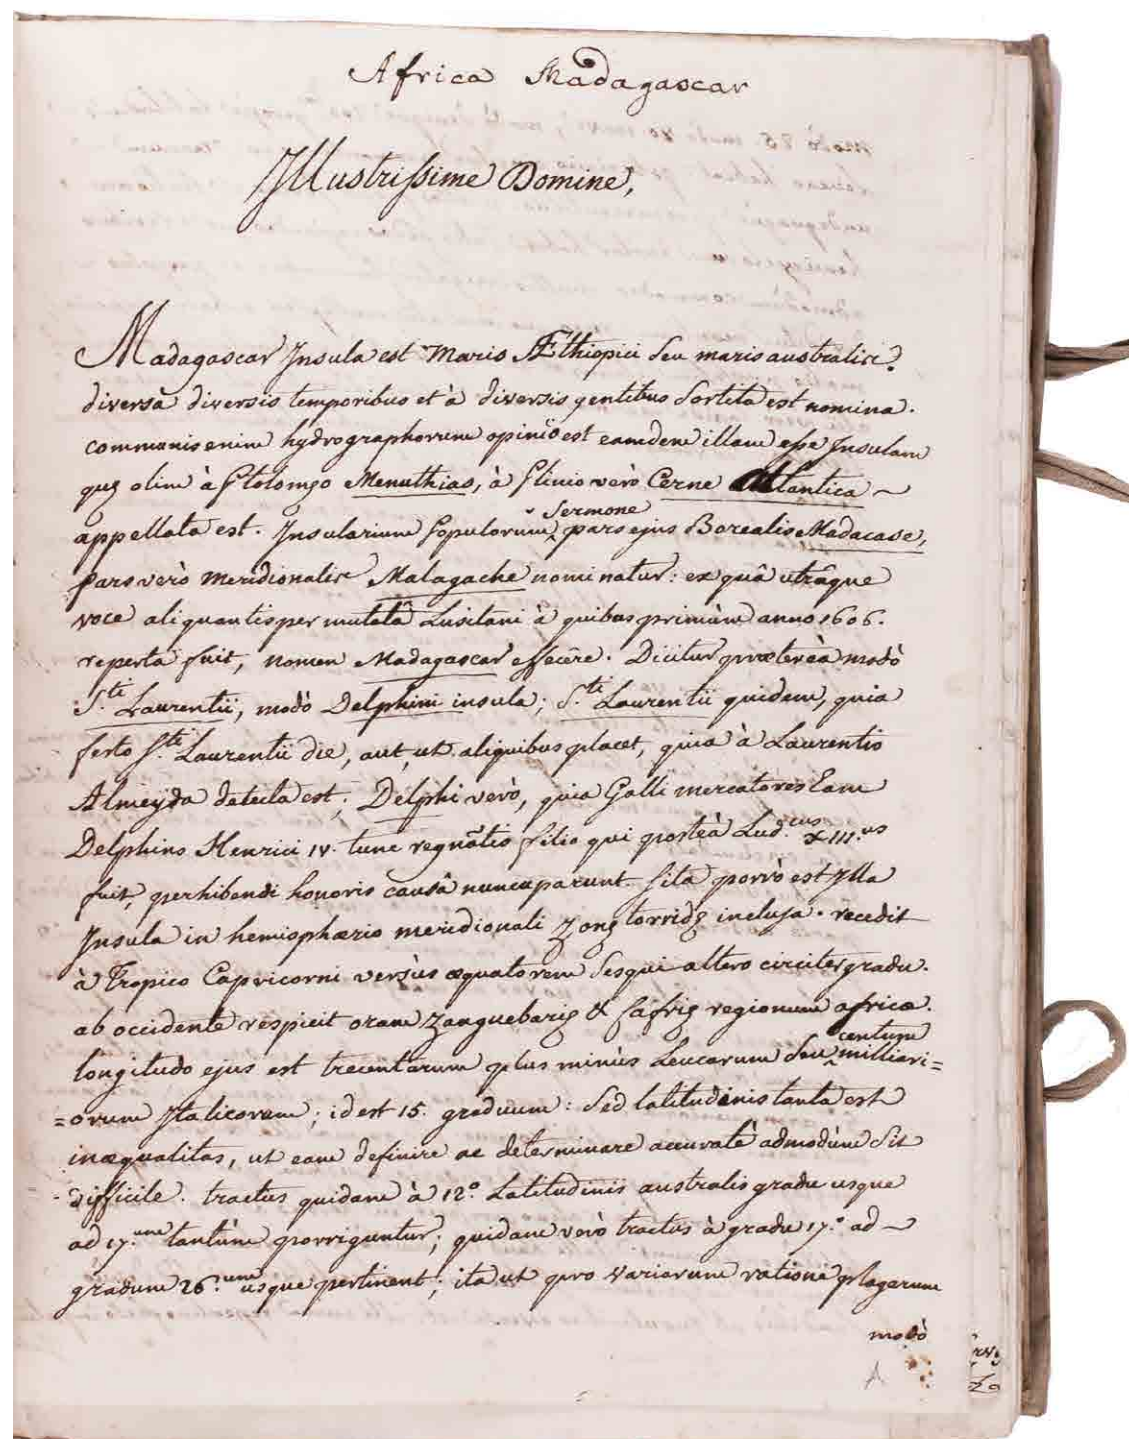 Africa Madagascar
Illustrissime Domine,
Madagascar Insula est Maris Æthiopici seu maris australis.
diversa diversis temporibus et à diversis gentibus sortita est nomina.
communis enim hydrographorum opinio est eamdem illam esse Insulam
quę olim à Ptolomęo Menuthias, à Plinio verò Cerne Atlantica ~
appellata est. Insularium populorum sermone pars ejus Borealis Madacase,
pars verò meridionalis Malagache nominatur: ex quâ utrâque
voce aliquantisper mutatâ Lusitani à quibus primùm anno 1606.
reperta fuit, nomen Madagascar effecêre. Dicitur prætereà modò
S.ti Laurentii, modò Delphini insula; S.ti Laurentii quidem, quia
festo S.ti Laurentii die, aut, ut aliquibus placet, quia à Laurentio
Almeyda detecta est; Delphi verò, quia Galli mercatores Eam
Delphino Henrici IV. tunc regnātis filio qui posteà Lud.cus XIII.us
fuit, perhibendi honoris causâ nuncuparunt. Sita porrò est Illa
Insula in hemisphærio meridionali Zonę torridę inclusa. recedit
à Tropico Capricorni versùs æquatorem sesqui altero circiter gradu.
ab occidente respicit oram Zanguebarię & Cafrię regionum africæ.
longitudo ejus est trecentarum plus minùs Leucarum seu centum milliari=
=orum Italicorum; id est 15. graduum: sed latitudinis tanta est
inæqualitas, ut eam definire ac determinare accuratè admodùm sit
difficile. tractus quidam à 12.º Latitudinis australis gradu usque
ad 17.um tantùm porriguntur; quidam verò tractus à gradu 17.º ad ~
gradum 26.um usque pertinent; ita ut pro variarum ratione plagarum
modò
A